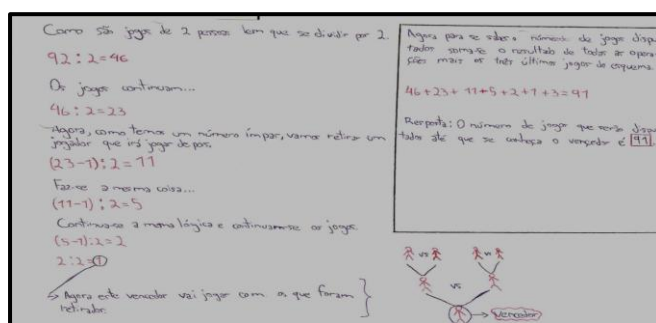 Como são jogos de 2 pessoas tem que se dividir por 2.
92 : 2 = 46
Os jogos continuam...
46 : 2 = 23
Agora, como temos um número ímpar, vamos retirar um
jogador que irá jogar depois.
(23-1) : 2 = 11
Faz-se a mesma coisa...
(11-1) : 2 = 5
Continua-se a mesma lógica e continuam-se os jogos
(5-1) : 2 = 2
2 : 2 = 1
→ Agora este vencedor vai jogar com os que foram
retirados.
Agora para se saber o número de jogos dispu
tados soma-se o resultado de todas as opera
ções mais os três últimos jogos do esquema.
46 + 23 + 11 + 5 + 2 + 1 + 3 = 91
Resposta: O número de jogos que serão dispu
tados até que se conheça o vencedor é 91.
vs vs
vs
→ Vencedor